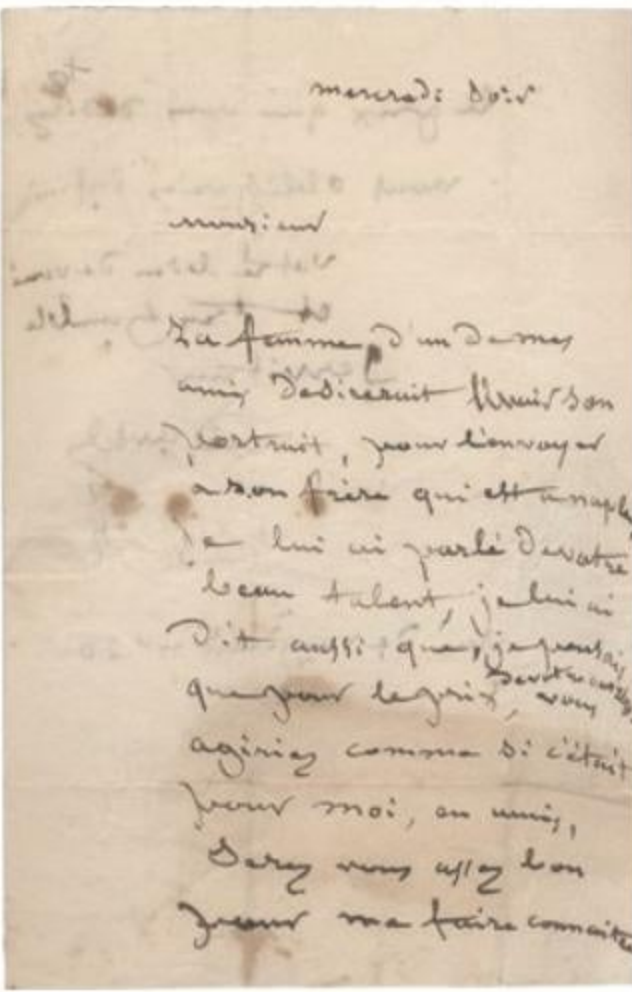 mercredi soir
monsieur
La femme d'un de mes
amis desirerait avoir son
portrait, pour l'envoyer
à son frère qui est a naples
je lui ai parlé de votre
beau talent, je lui ai
Dit aussi que, je pensais
que pour le prix, vous
agiriez comme si c'était
pour moi, en amis,
Serez vous assez bon
pour me faire connaitre